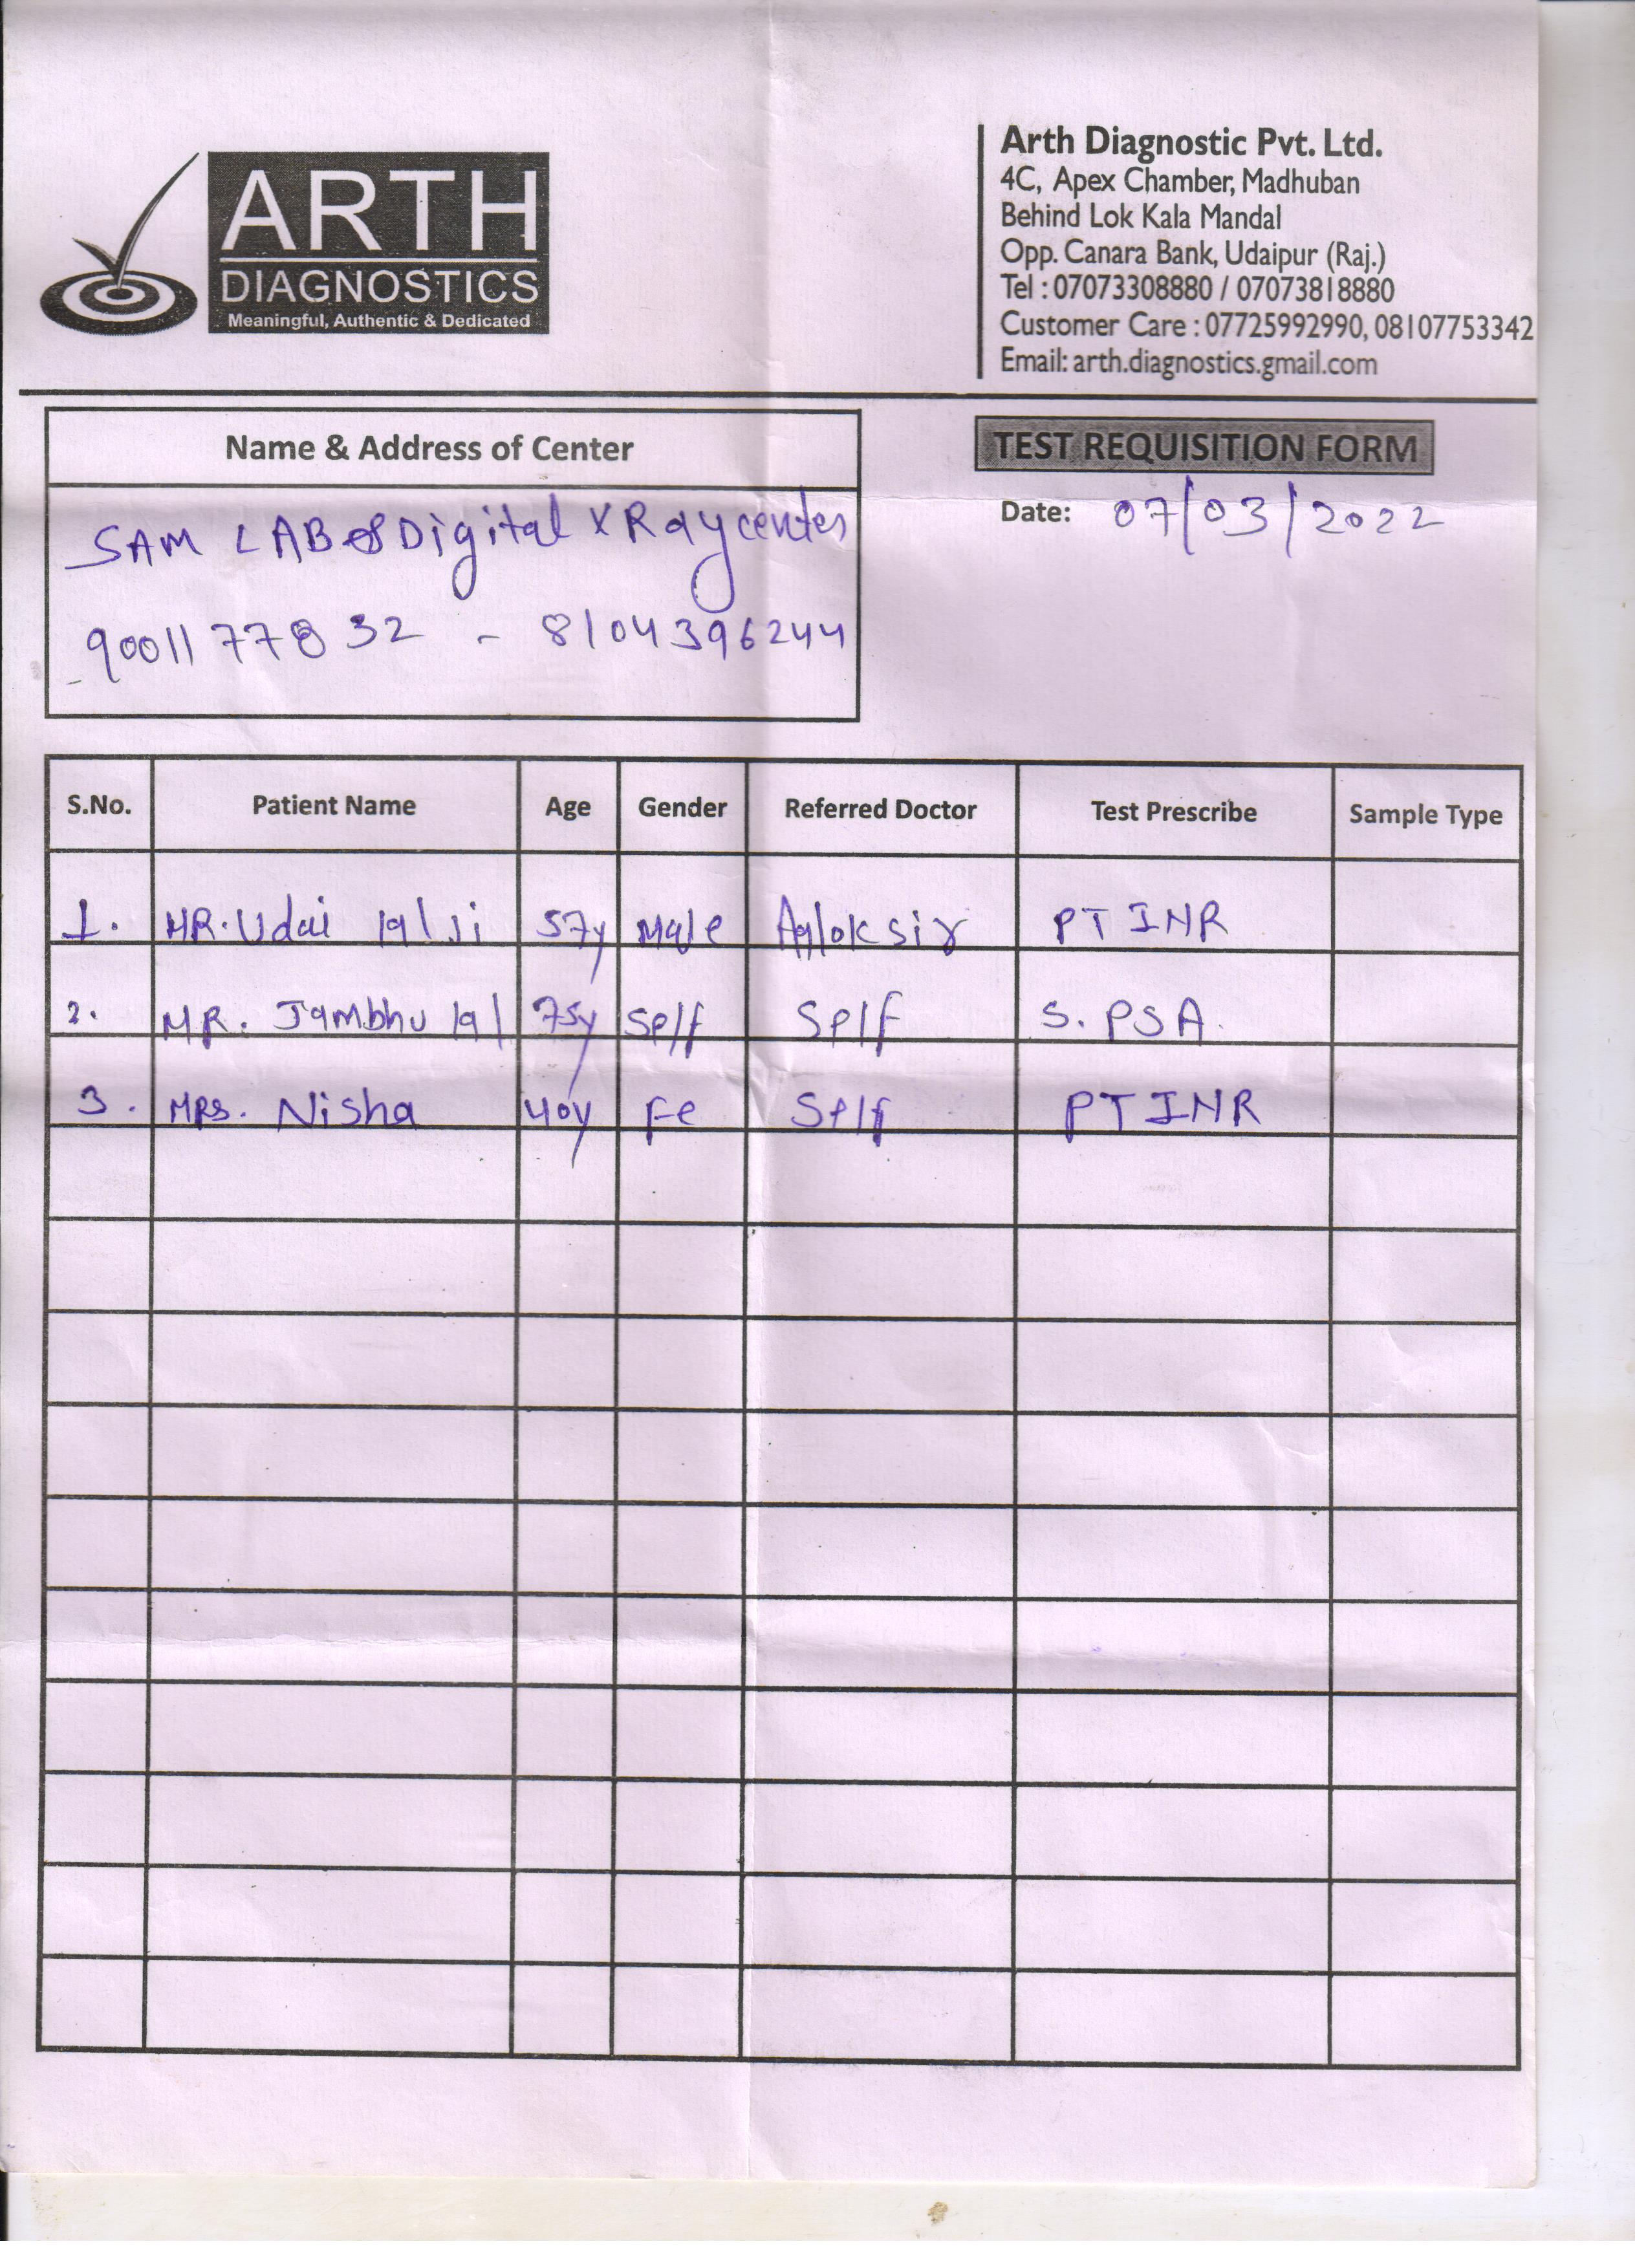 ARTH
DIAGNOSTICS
Meaningful, Authentic & Dedicated
Arth Diagnostic Pvt. Ltd.
4C, Apex Chamber, Madhuban
Behind Lok Kala Mandal
Opp. Canara Bank, Udaipur (Raj.)
Tel : 07073308880 / 07073818880
Customer Care : 07725992990, 08107753342
Email: arth.diagnostics.gmail.com
Name & Address of Center
SAM LAB & Digital X Ray center
9001177832 - 8104396244
TEST REQUISITION FORM
Date: 07/03/2022
S.No. Patient Name Age Gender Referred Doctor Test Prescribe Sample Type
1. MR. Udai lal Ji 57y Male Aalok sir PT INR
2. MR. Jambhu lal 75y Self Self S. PSA.
3. MRS. Nisha 40y Fe Self PT INR